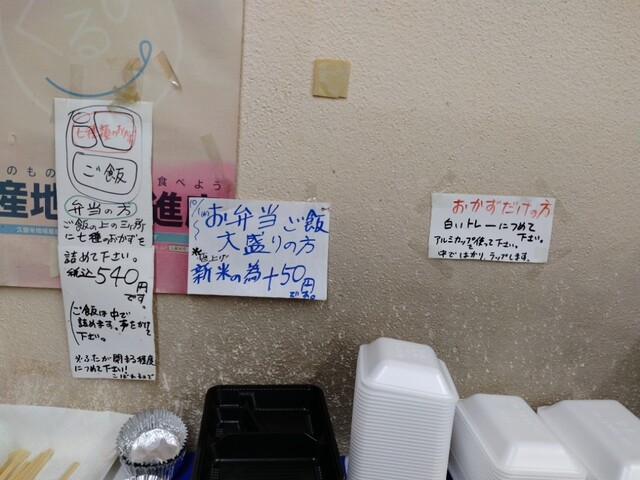 くる
のもの
食べよう
産地
進
七種類のおかず
ご飯
弁当の方
ご飯の上の三ヶ所
に七種のおかずを
詰めて下さい。
税込540円
です。
ご飯は中で
詰めます。声をかけて
下さい。
※ふたが閉まる程度
につめて下さい!
こぼれるので
お弁当ご飯
大盛りの方
※値上げ
新米の為+50円
です。
おかずだけの方
白いトレーにつめて
下さい。
アルミカップ使って下さい。
中ではかり、ラップします。